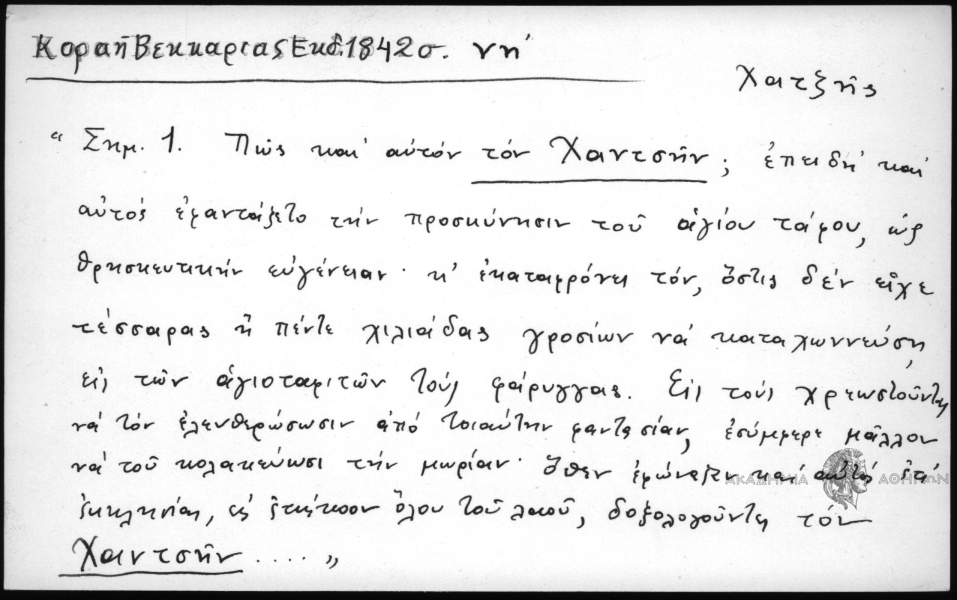 Κοραῆ Βεκκαρίας Ἐκδ. 1842 σ. νη'
Χατζῆς
“ Σημ. 1. Πῶς καί αὐτόν τόν Χαντσῆν ; ἐπειδή καί
αὐτός ἐφαντάζετο τήν προσκύνησιν τοῦ ἁγίου τάφου, ὡς
θρησκευτικήν εὐγένειαν · κ' ἐκαταφρόνει τόν, ὅστις δέν εἶχε
τέσσαρας ἤ πέντε χιλιάδας γροσίων νά καταχωννεύσῃ,
εἰς τῶν ἁγιοταφιτῶν τούς φάρυγγας. Εἰς τούς χρεωστοῦντας
νά τόν ἐλευθερώσωσιν ἀπό τοιαύτην φαντασίαν, ἐσύμφερε μᾶλλον
νά τοῦ κολακεύωσι τήν μωρίαν · ὅθεν ἐφώναζεν καί αὐτός ἐπ'
ἐκκλησίας, εἰς ἐπήκοον ὅλου τοῦ λαοῦ, δοξολογοῦντες τόν
Χαντσῆν .... „
ΑΚΑΔΗΜΙΑ ΑΘΗΝΩΝ